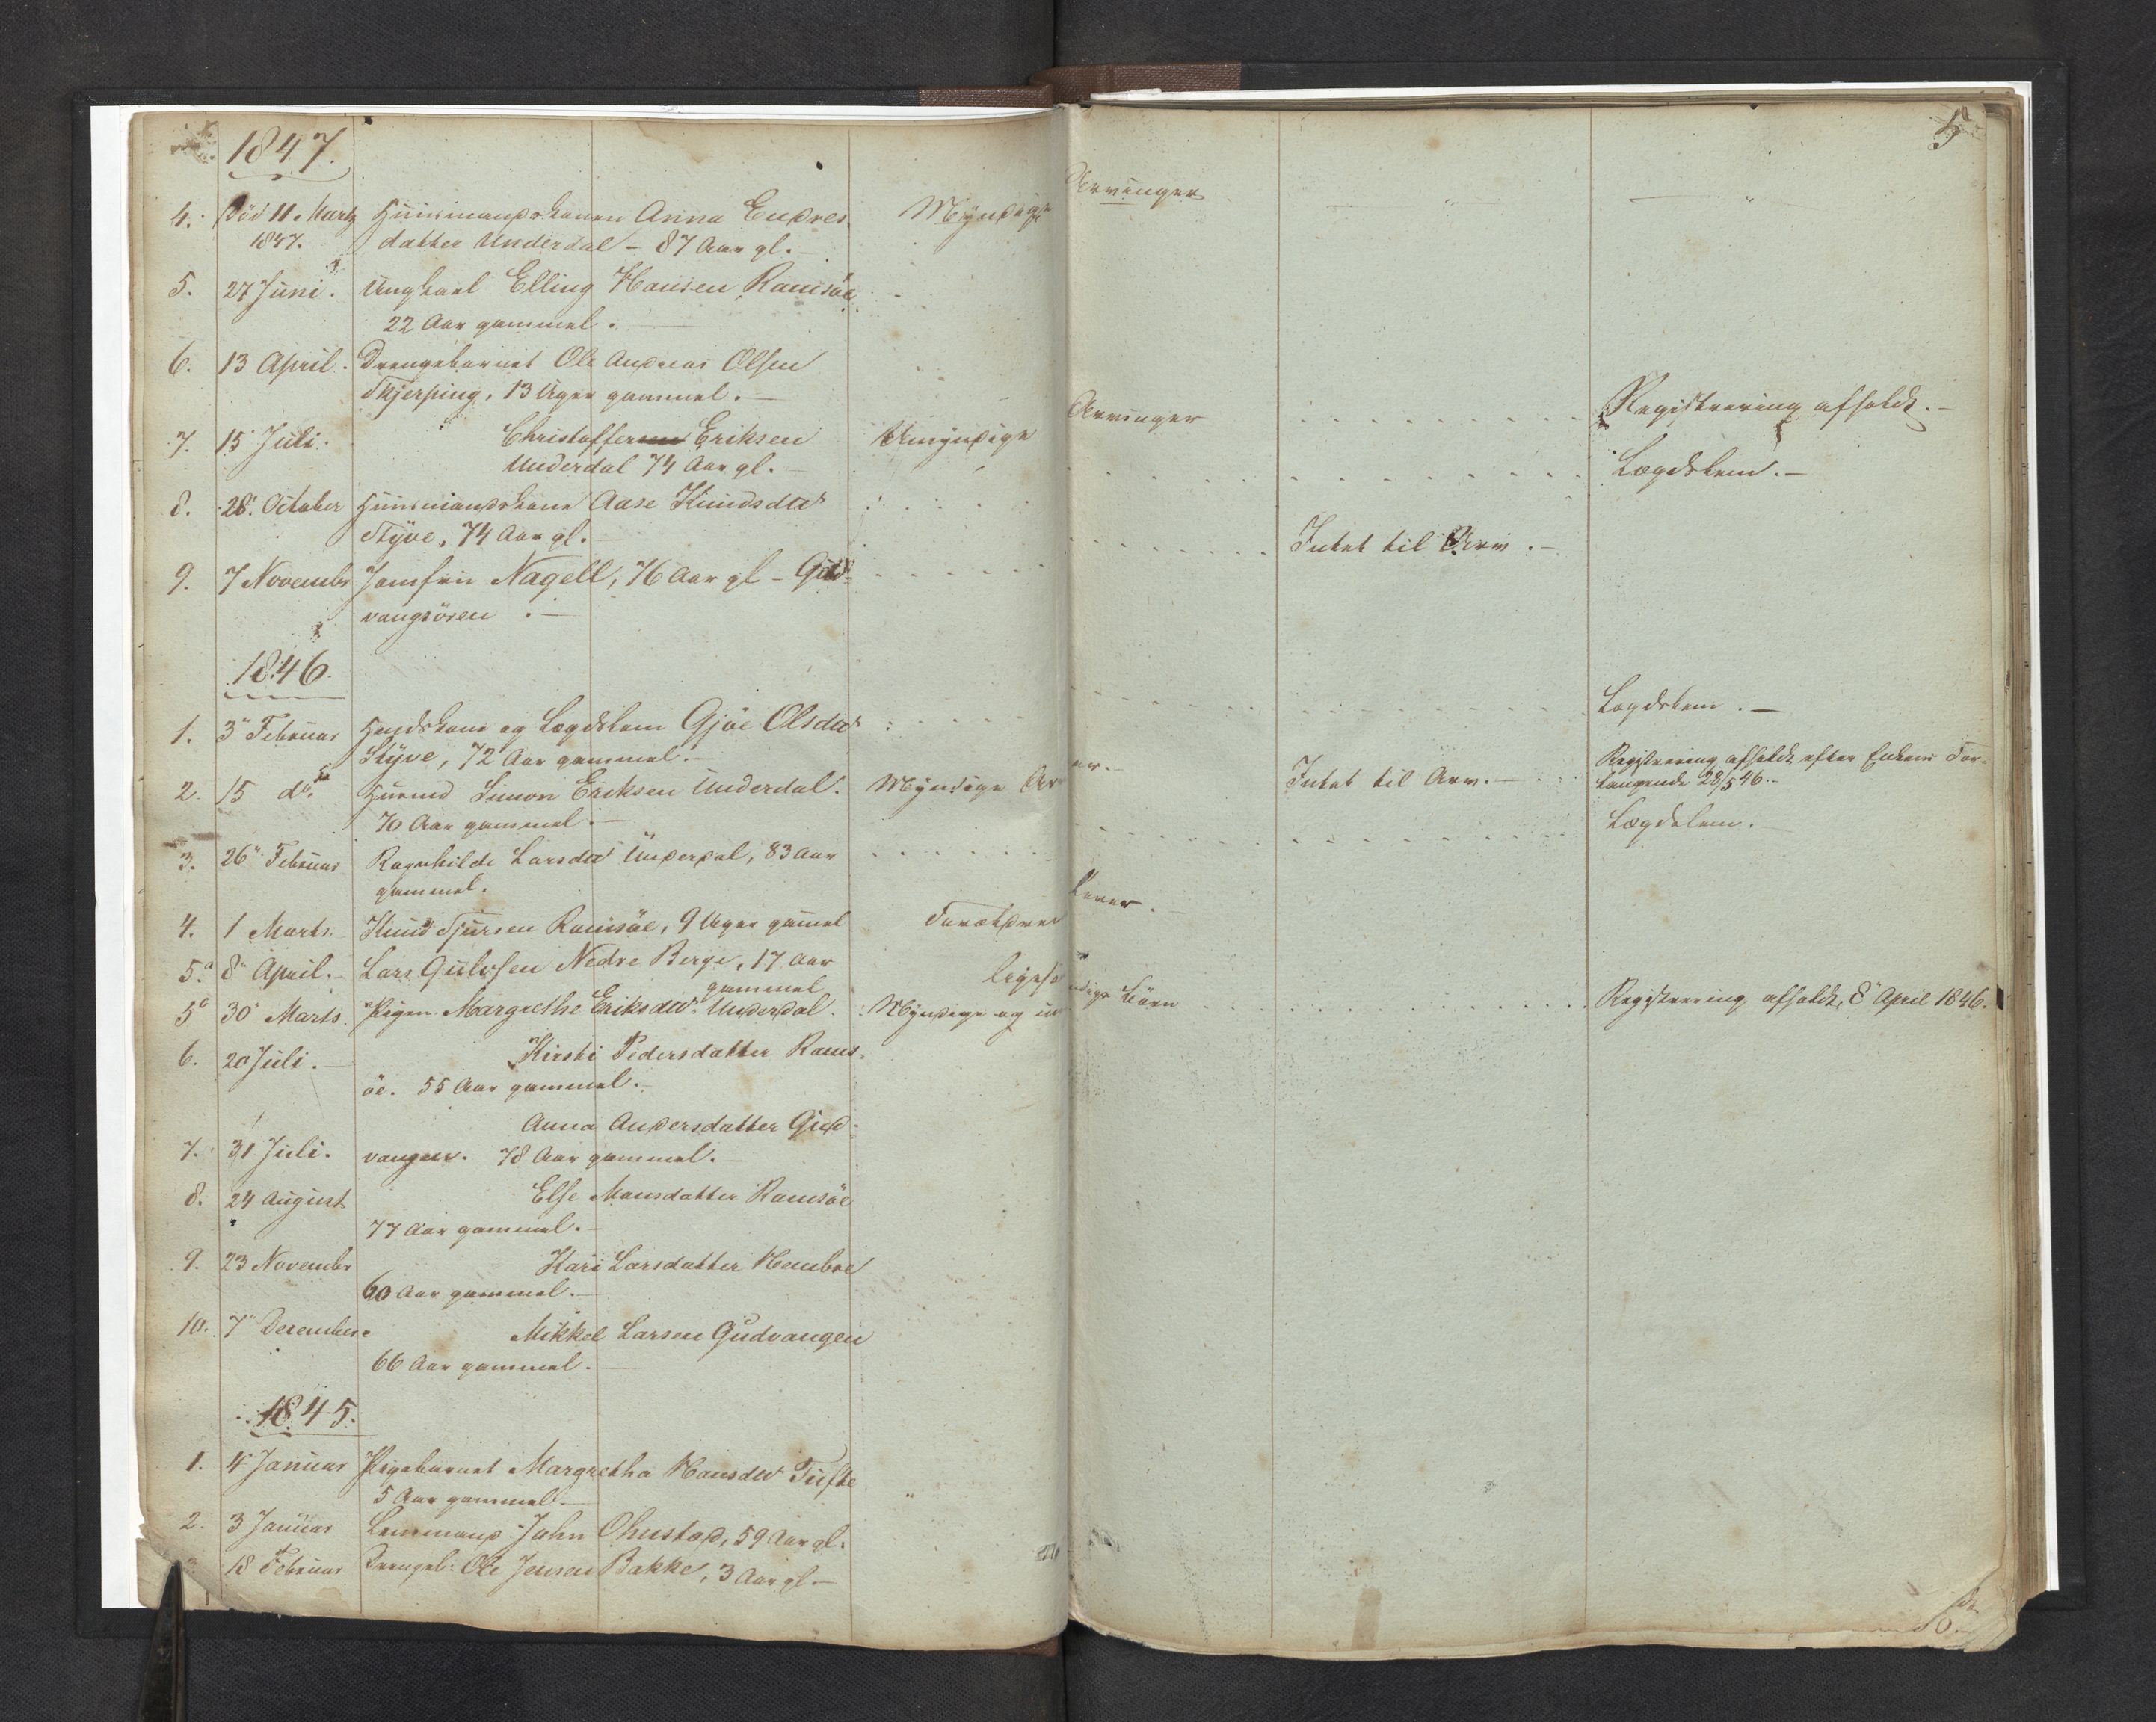 1847.
4. Död 11. Martz Huusmandskonen Anna Endres-
1847. datter Underdal - 87 Aar gl. Myndige Arvinger
5. 27 Juni. Ungkarl Elling Hansen Ramsöe
22 Aar gammel.
6. 13 April. Drengebarnet Ole Andreas Olsen
Skjerping, 13 Uger gammel.
7. 15 Juli. " Christoffer Eriksen Umyndige Arvinger Registrering afholdt.
Underdal 74 Aar gl. Lægdslem.
8. 28. October Huusmandskone Aase Knudsdtr
Styve, 74 Aar gl. Intet til Arv.
9. 7 Novembr Jomfru Nagell, 76 Aar gl - Gud-
vangsören.
1846.
1. 3 Februar Kone og Lægdslem Gjöe Olsdtr Lægdslem.
Styve, 72 Aar gammel.
2. 15 do. Huusmd Simon Eriksen Underdal. Myndige Arv Intet til Arv. Registrering afholdt efter Enkens For-
70 Aar gammel. langende 28/5 46.
3. 26 Februar Ragnhilde Larsdtr Underdal, 83 Aar Lægdslem.
gammel.
4. 1 Marts. Knud Sjursen Ramsöe, 9 Uger gamel Forældrene lever.
5.a 8 April. Lars Gulvsen Nedre Berge, 17 Aar
gammel ligesaa
5b 30 Marts. Pigen Margrethe Eriksdtr Underdal. Myndige og umyndige Börn Registrering afholdt, 8 April 1846.
6. 20 Juli. Kirsti Pedersdatter Rams-
öe. 55 Aar gammel.
Anna Andersdatter Gud-
7. 31 Juli. vangen. 78 Aar gammel.
8. 24 August Else Monsdatter Ramsöe
77 Aar gammel.
9. 23 Novembr Kari Larsdatter Hembre
60 Aar gammel.
10. 7 December Mikkel Larsen Gudvangen
66 Aar gammel.
1845.
1. 4 Januar Pigebarnet Margretha Hansdtr Tufte
5 Aar gammel
2. 3 Januar Lensmand John Ohnstad, 59 Aar gl.
3. 18 Februar Drengeb: Ole Jensen Bakke, 3 Aar gl.
5